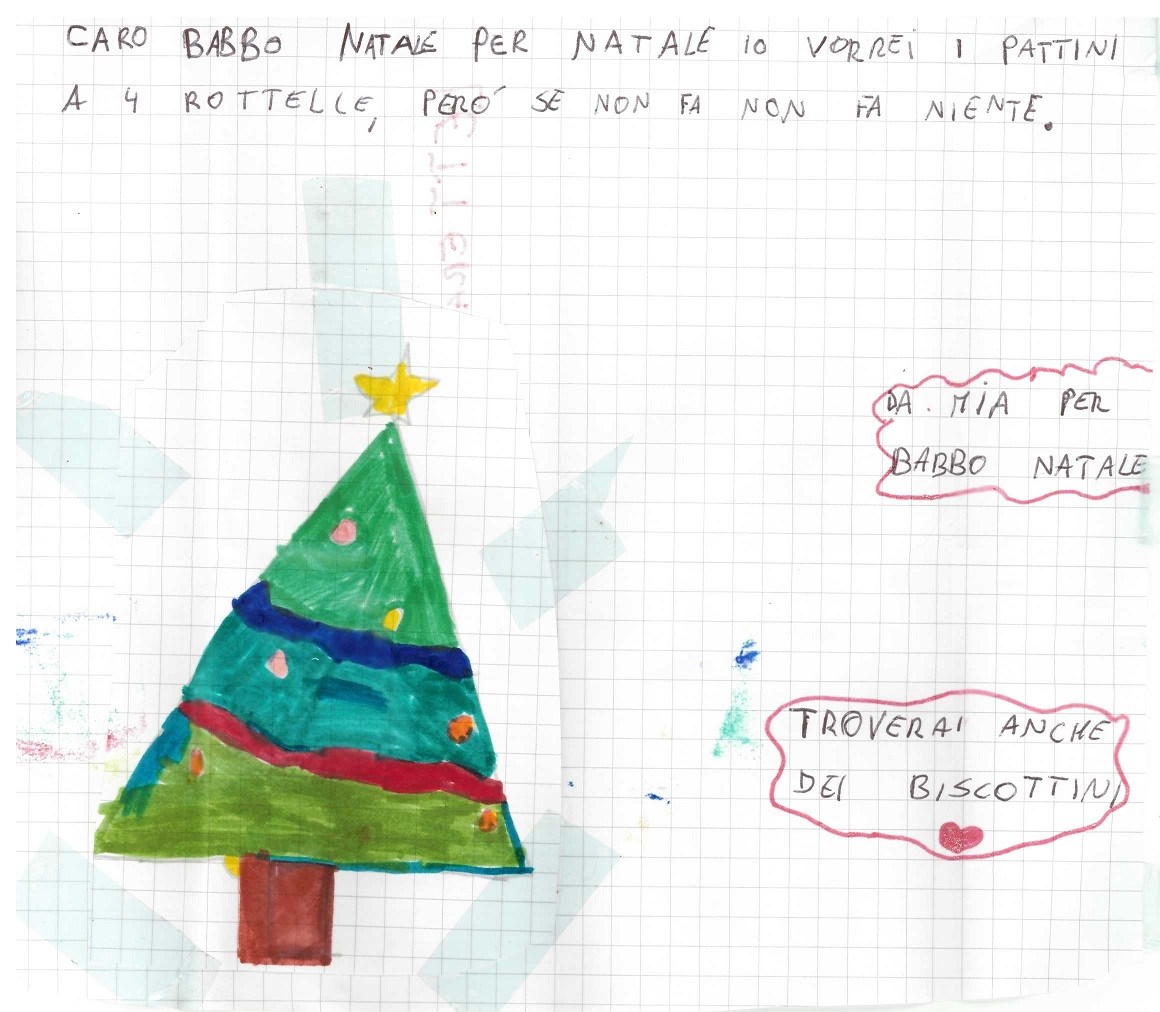 CARO BABBO NATALE PER NATALE IO VORREI I PATTINI
A 4 ROTTELLE, PERÓ SE NON FA NON FA NIENTE.
DA MIA PER
BABBO NATALE
TROVERAI ANCHE
DEI BISCOTTINI